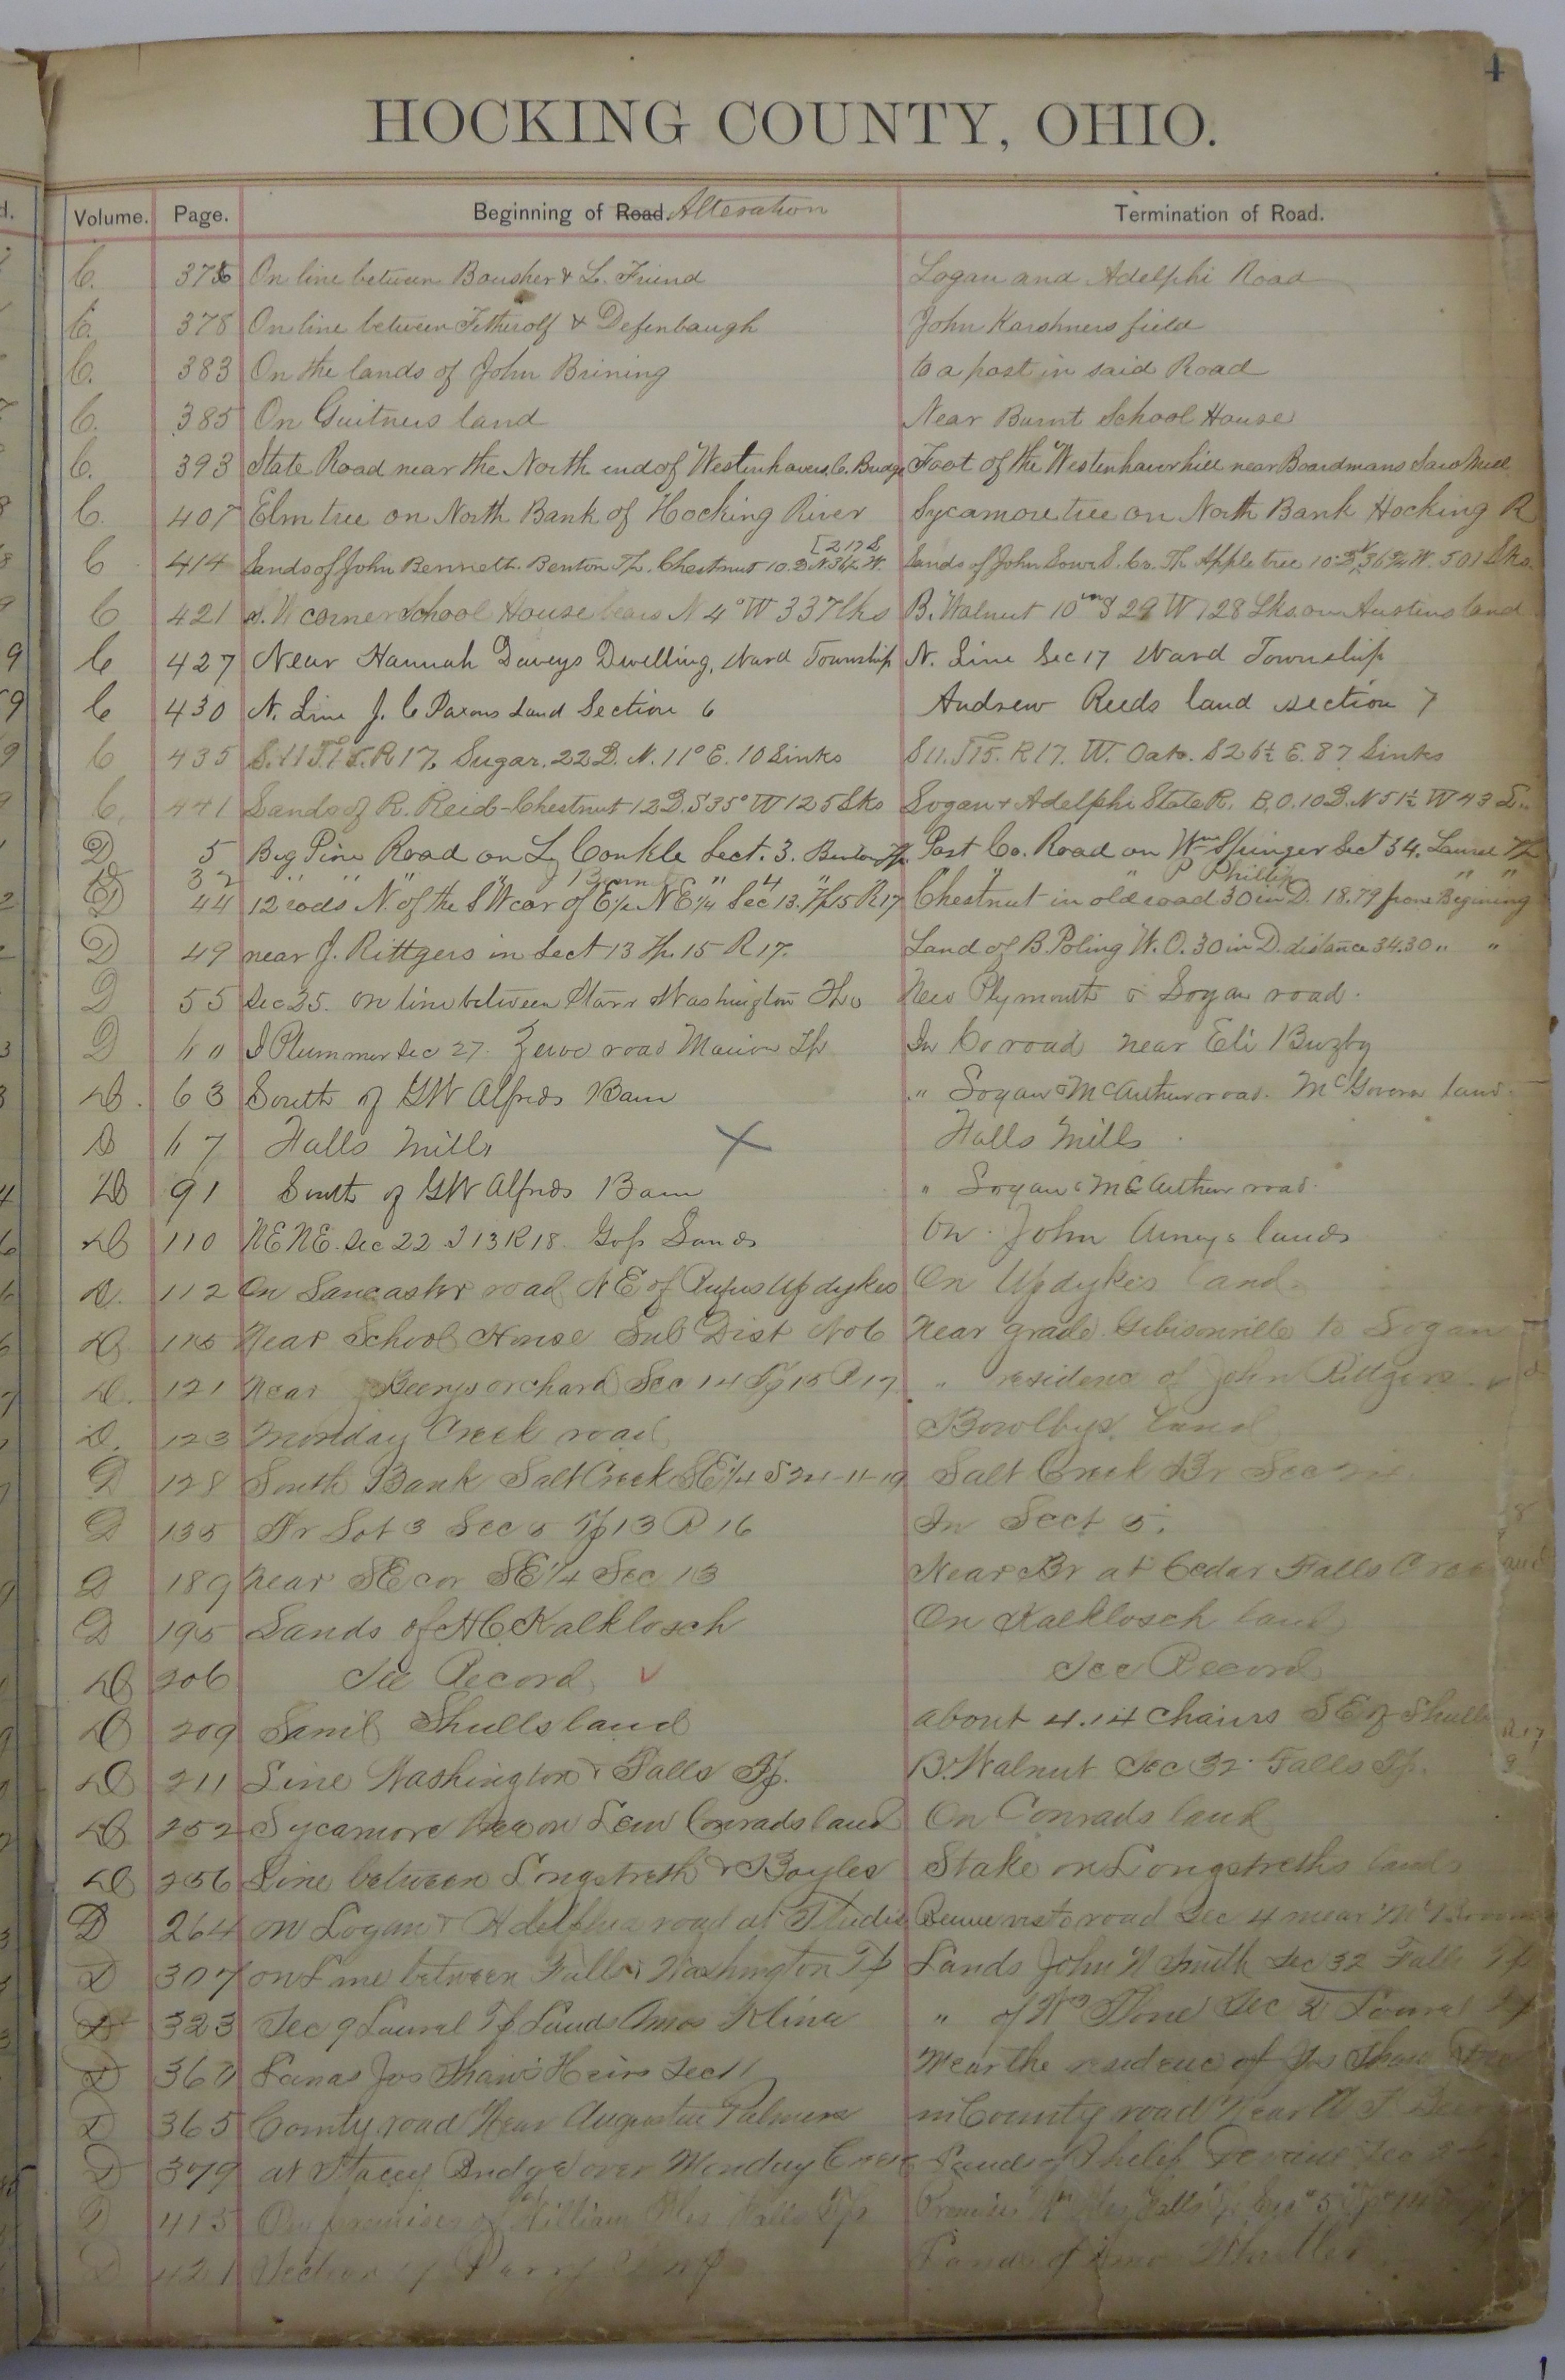 4
HOCKING COUNTY, OHIO.
Volume. Page. Beginning of Road. Alteration Termination of Road.
C. 376 On line between Bousher & L. Friend Logan and Adelphi Road
C. 378 On line between Fetherolf & Defenbaugh John Karshners field
C. 383 On the lands of John Brining to a post in said Road
C. 385 On Guitners land Near Burnt School House
C. 393 State Road near the North end of Westenhavers C. Bridge Foot of the Westenhaver hill near Boardmans Saw Mill
C. 407 Elm tree on North Bank of Hocking River Sycamore tree on North Bank Hocking R
[217 L
C 414 Lands of John Bennett. Benton Tp. Chestnut 10. D N 36½ W. Lands of John Lowe S. Co. Th. Apple tree 10. D 36¾ W. 501 Lks.
C 421 S. W corner School House bears N 4° W 337 lks B. Walnut 10 in S 29 W 128 Lks. on Austins land
C 427 Near Hannah Daveys Dwelling, Ward Township N. Line Sec 17 Ward Township
C 430 N. Line J. C Paxons Land Section 6 Andrew Reeds land section 7
C 435 S. 11 T. 15. R 17. Sugar. 22 D. N. 11° E. 10 Links S 11. T 15. R 17. W. Oak. S 26½ E. 87 Links
C. 441 Lands of R. Reid - Chestnut 12 D. S 35° W 125 Lks Logan & Adelphi State R. B. O. 10 D. N 51½ W 43 L..
D 5 Big Pine Road on L. Conkle Sect. 3. Benton Tp. Post Co. Road on Wm Springer Sect 34. Laurel Tp
D 32 " " " " " 4 " " " P Phillip " "
D 44 12 rods N. of the SW cor of E ½ NE ¼ Sec 13. Tp 15 R 17 Chestnut in old road 30 in D. 18.79 from Begining
D 49 near J. Rittgers in Sect 13 Tp. 15 R 17. Land of B. Poling W. O. 30 in D. distance 34.30 " "
D 55 Sec 35. on line between Starr & Washington Tps New Plymouth & Logan road.
D 60 J Plummer Sec 27. road Marion Tp In Co road near Eli Buzby
D. 63 South of GW Alfreds Barn " Logan & McArthur road. McGovern land.
D 67 Halls Mills X Halls Mills
D 91 South of GW Alfreds Barn " Logan & McArthur road.
D 110 NE NE. Sec 22 T 13 R 18. Lands On John lands
D. 112 On Lancaster road NE of Rufus Updykes On Updykes land
D. 115 Near School House Sub Dist No 6 Near grade Gibisonville to Logan
D. 121 Near Beerys orchard Sec 14 Tp 15 R 17 " residence of John Rittgers
D. 123 Monday Creek road Bowlbys land
D 128 South Bank Salt Creek SE ¼ S 24-11-19 Salt Creek Br Sec 24
D 135 Fr Lot 3 Sec 5 Tp 13 R 16 In Sect 5.
D 189 Near SE cor SE ¼ Sec 13 Near Br at Cedar Falls
D 195 Lands of H C Kalklosch On Kalklosch land
D 206 See Record ✓ See Record
D 209 Saml Shulls land about 4.14 chains SE of Shulls
D 211 Line Washington & Falls Tp. B. Walnut Sec 32 Falls Tp.
D 252 Sycamore tree on Lew Conrads land On Conrads land
D 256 Line between Longstreth & Boyles Stake on Longstreths lands
D 264 on Logan & Adelphia road at road Sec 4 near
D 307 on Line between Falls & Washington Tp Lands John W Smith Sec 32 Falls Tp
D 323 Sec 9 Laurel Tp Lands Amos Kline " of Wm Sec 2 Laurel Tp
D 360 Lands Jos Shaw's Heirs Sec 11 Near the residence of Jos Shaw
D 365 County road Near Augustus Palmers in County road Near
D 379 at Stacey Bridge over Monday Creek Lands of Philip Sec
D 415 On premises of William Falls Tp Premises Wm Falls Tp
D 421 Section Lands of